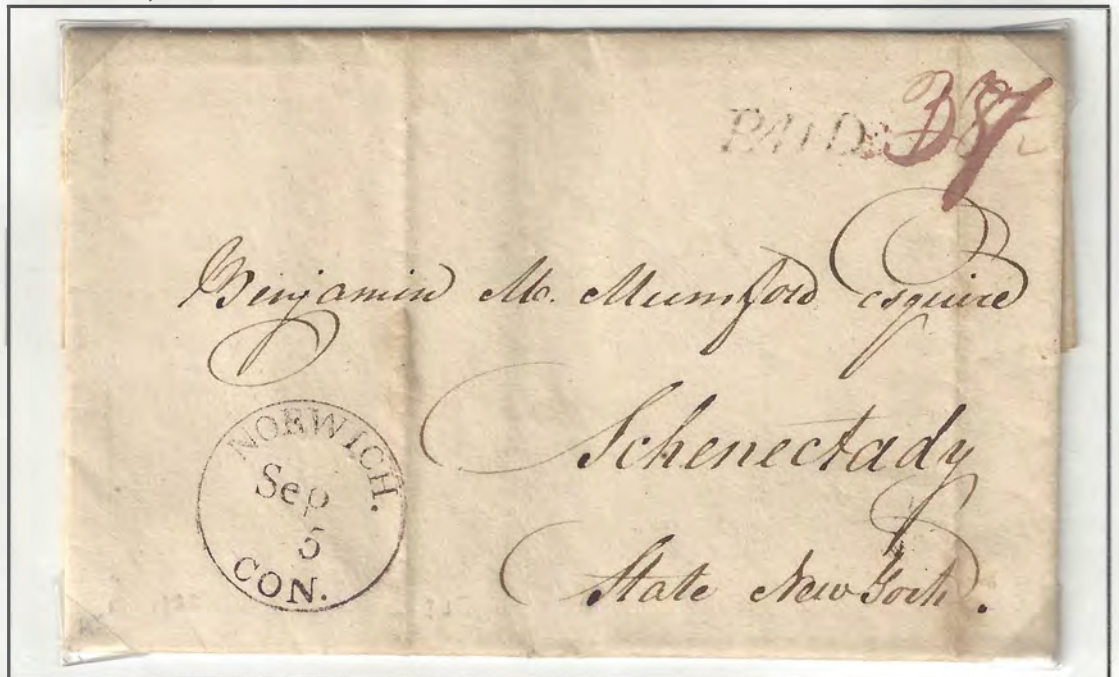 PAID 37
Benjamin M. Mumford esquire
Schenectady
State New York.
NORWICH.
Sep
5
CON.